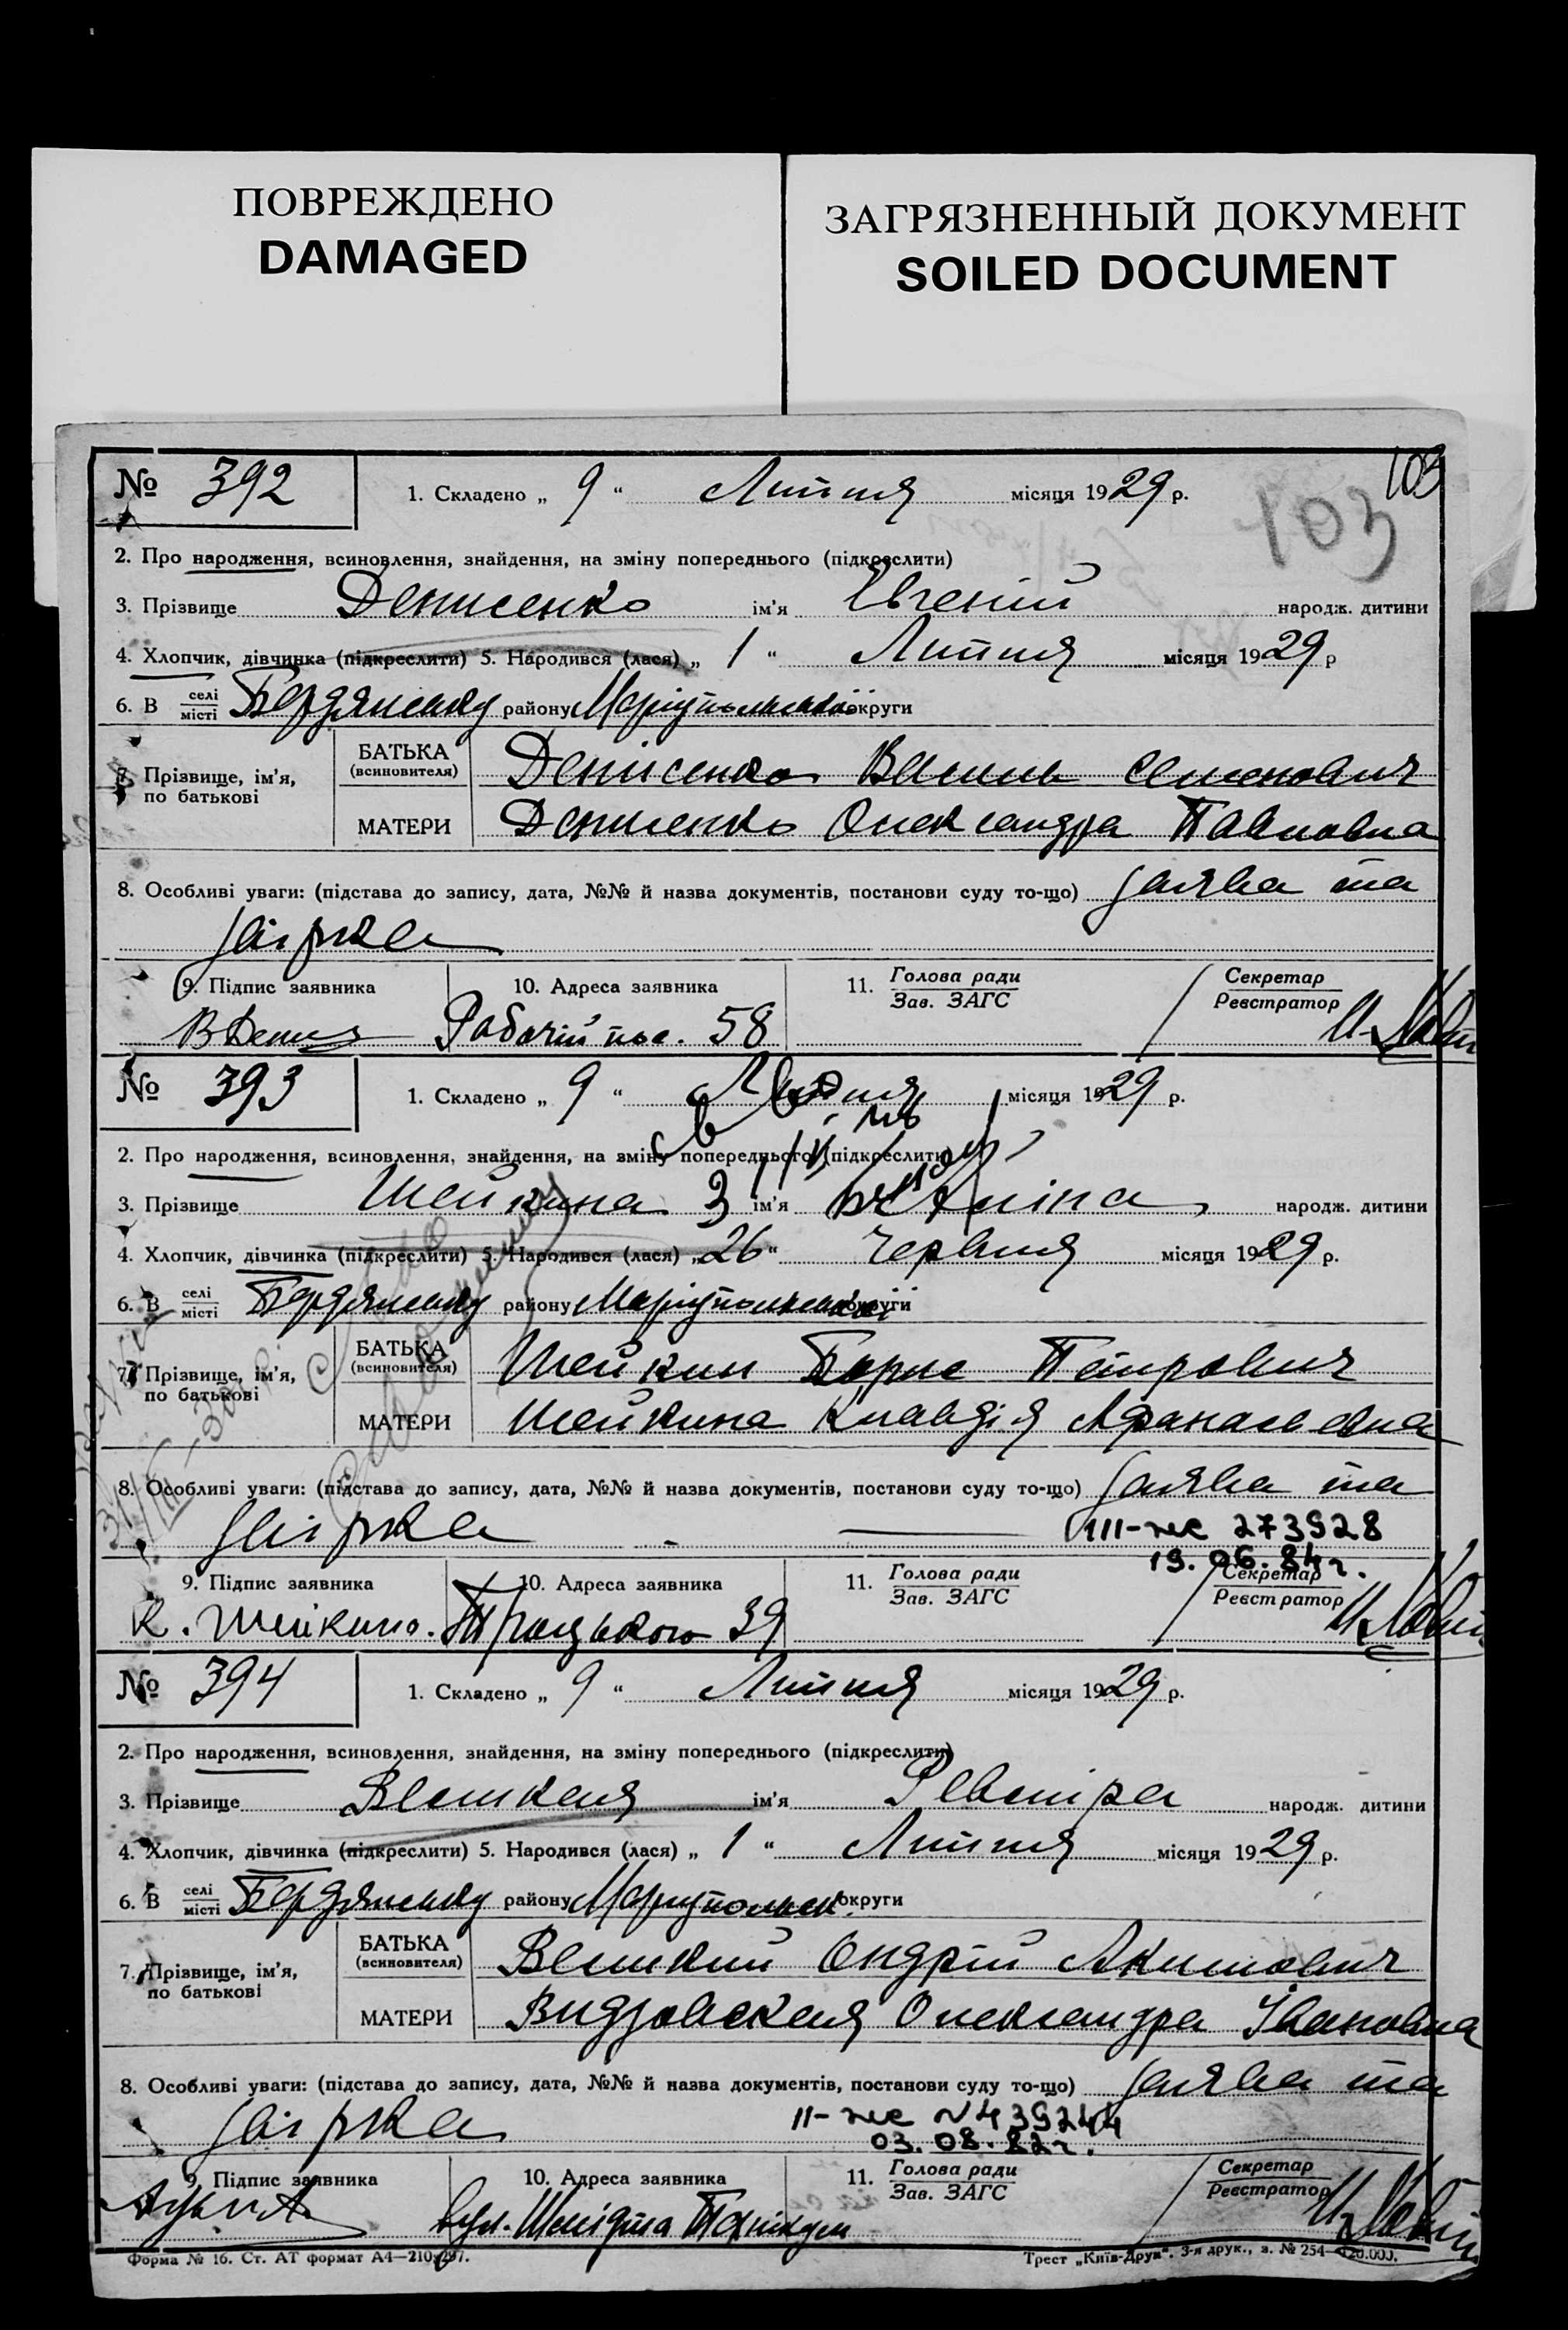 ПОВРЕЖДЕНО
DAMAGED
ЗАГРЯЗНЕННЫЙ ДОКУМЕНТ
SOILED DOCUMENT
103
103
№ 392
1. Складено „ 9 “ Липня місяця 1929 р.
2. Про народження, всиновлення, знайдення, на зміну попереднього (підкреслити)
3. Прізвище Денисенко ім'я Євгеній народж. дитини
4. Хлопчик, дівчинка (підкреслити) 5. Народився (лася) „ 1 “ Липня місяця 1929 р
6. В селі/місті Бердянську району Маріупольської округи
7. Прізвище, ім'я, по батькові
БАТЬКА (всиновителя) Денісенко Василь Семенович
МАТЕРИ Денисенко Олександра Павловна
8. Особливі уваги: (підстава до запису, дата, №№ й назва документів, постанови суду то-що) заява та
довідка
9. Підпис заявника 10. Адреса заявника 11. Голова ради/Зав. ЗАГС Секретар/Реєстратор
Рабочій пос. 58
№ 393
1. Складено „ 9 “ Липня місяця 1929 р.
2. Про народження, всиновлення, знайдення, на зміну попереднього (підкреслити)
3. Прізвище Шейкина ім'я народж. дитини
4. Хлопчик, дівчинка (підкреслити) 5. Народився (лася) „ 26 “ Червня місяця 1929 р.
6. В селі/місті Бердянську району Маріупольської округи
7. Прізвище, ім'я, по батькові
БАТЬКА (всиновителя) Шейкин Борис Петрович
МАТЕРИ Шейкина Клавдія Афанасьевна
8. Особливі уваги: (підстава до запису, дата, №№ й назва документів, постанови суду то-що) заява та
довідка
III-жс 273928
19.06.84г.
9. Підпис заявника 10. Адреса заявника 11. Голова ради/Зав. ЗАГС Секретар/Реєстратор
К. Шейкина. Троцького 39
№ 394
1. Складено „ 9 “ Липня місяця 1929 р.
2. Про народження, всиновлення, знайдення, на зміну попереднього (підкреслити)
3. Прізвище ім'я народж. дитини
4. Хлопчик, дівчинка (підкреслити) 5. Народився (лася) „ 1 “ Липня місяця 1929 р.
6. В селі/місті Бердянську району Маріупольськ. округи
7. Прізвище, ім'я, по батькові
БАТЬКА (всиновителя) Ондрій Акимович
МАТЕРИ Олександра Івановна
8. Особливі уваги: (підстава до запису, дата, №№ й назва документів, постанови суду то-що) заява та
довідка
II-жс N439244
03.08.82г.
9. Підпис заявника 10. Адреса заявника 11. Голова ради/Зав. ЗАГС Секретар/Реєстратор
вул. Шмідта
Форма № 16. Ст. АТ формат А4—210×297.
Трест „Київ-Друк“. 3-я друк., з. № 254—120.000.